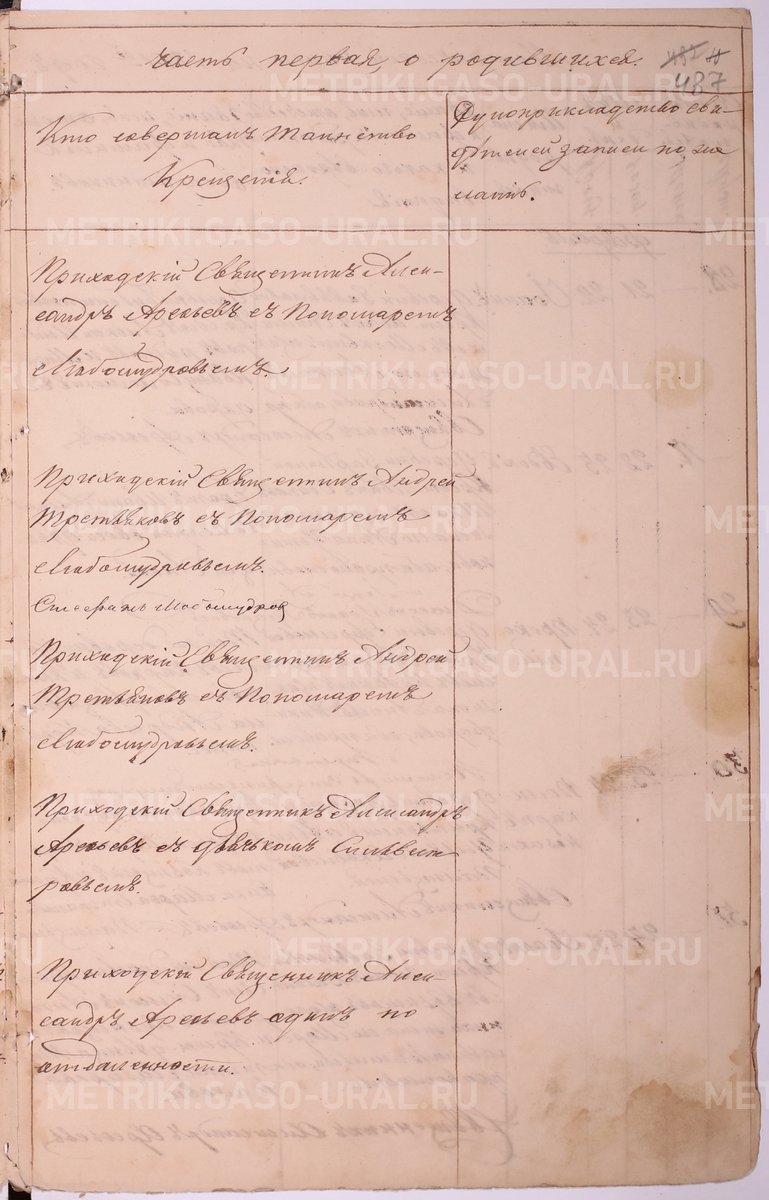 часть первая, о родившихся.
487
Кто совершалъ таинство
Крещенія.
Рукоприкладство сви-
дѣтелей записи по же
ланію.
Приходскій Священникъ Алек-
сандръ Арсеьевъ съ Пономаремъ
Любомудровымъ.
Приходскій Священникъ Андрей
Третьяковъ съ Пономаремъ
Любомудровымъ.
Любомудровъ
Приходскій Священникъ Андрей
Третьяковъ съ Пономаремъ
Любомудровымъ.
Приходскій Священникъ Александръ
Арсеьевъ съ дьячкомъ Сильвест
ровымъ.
Приходскій Священникъ Алек-
сандръ Арсеьевъ одинъ по
отдаленности.
METRIKI.GASO-URAL.RU